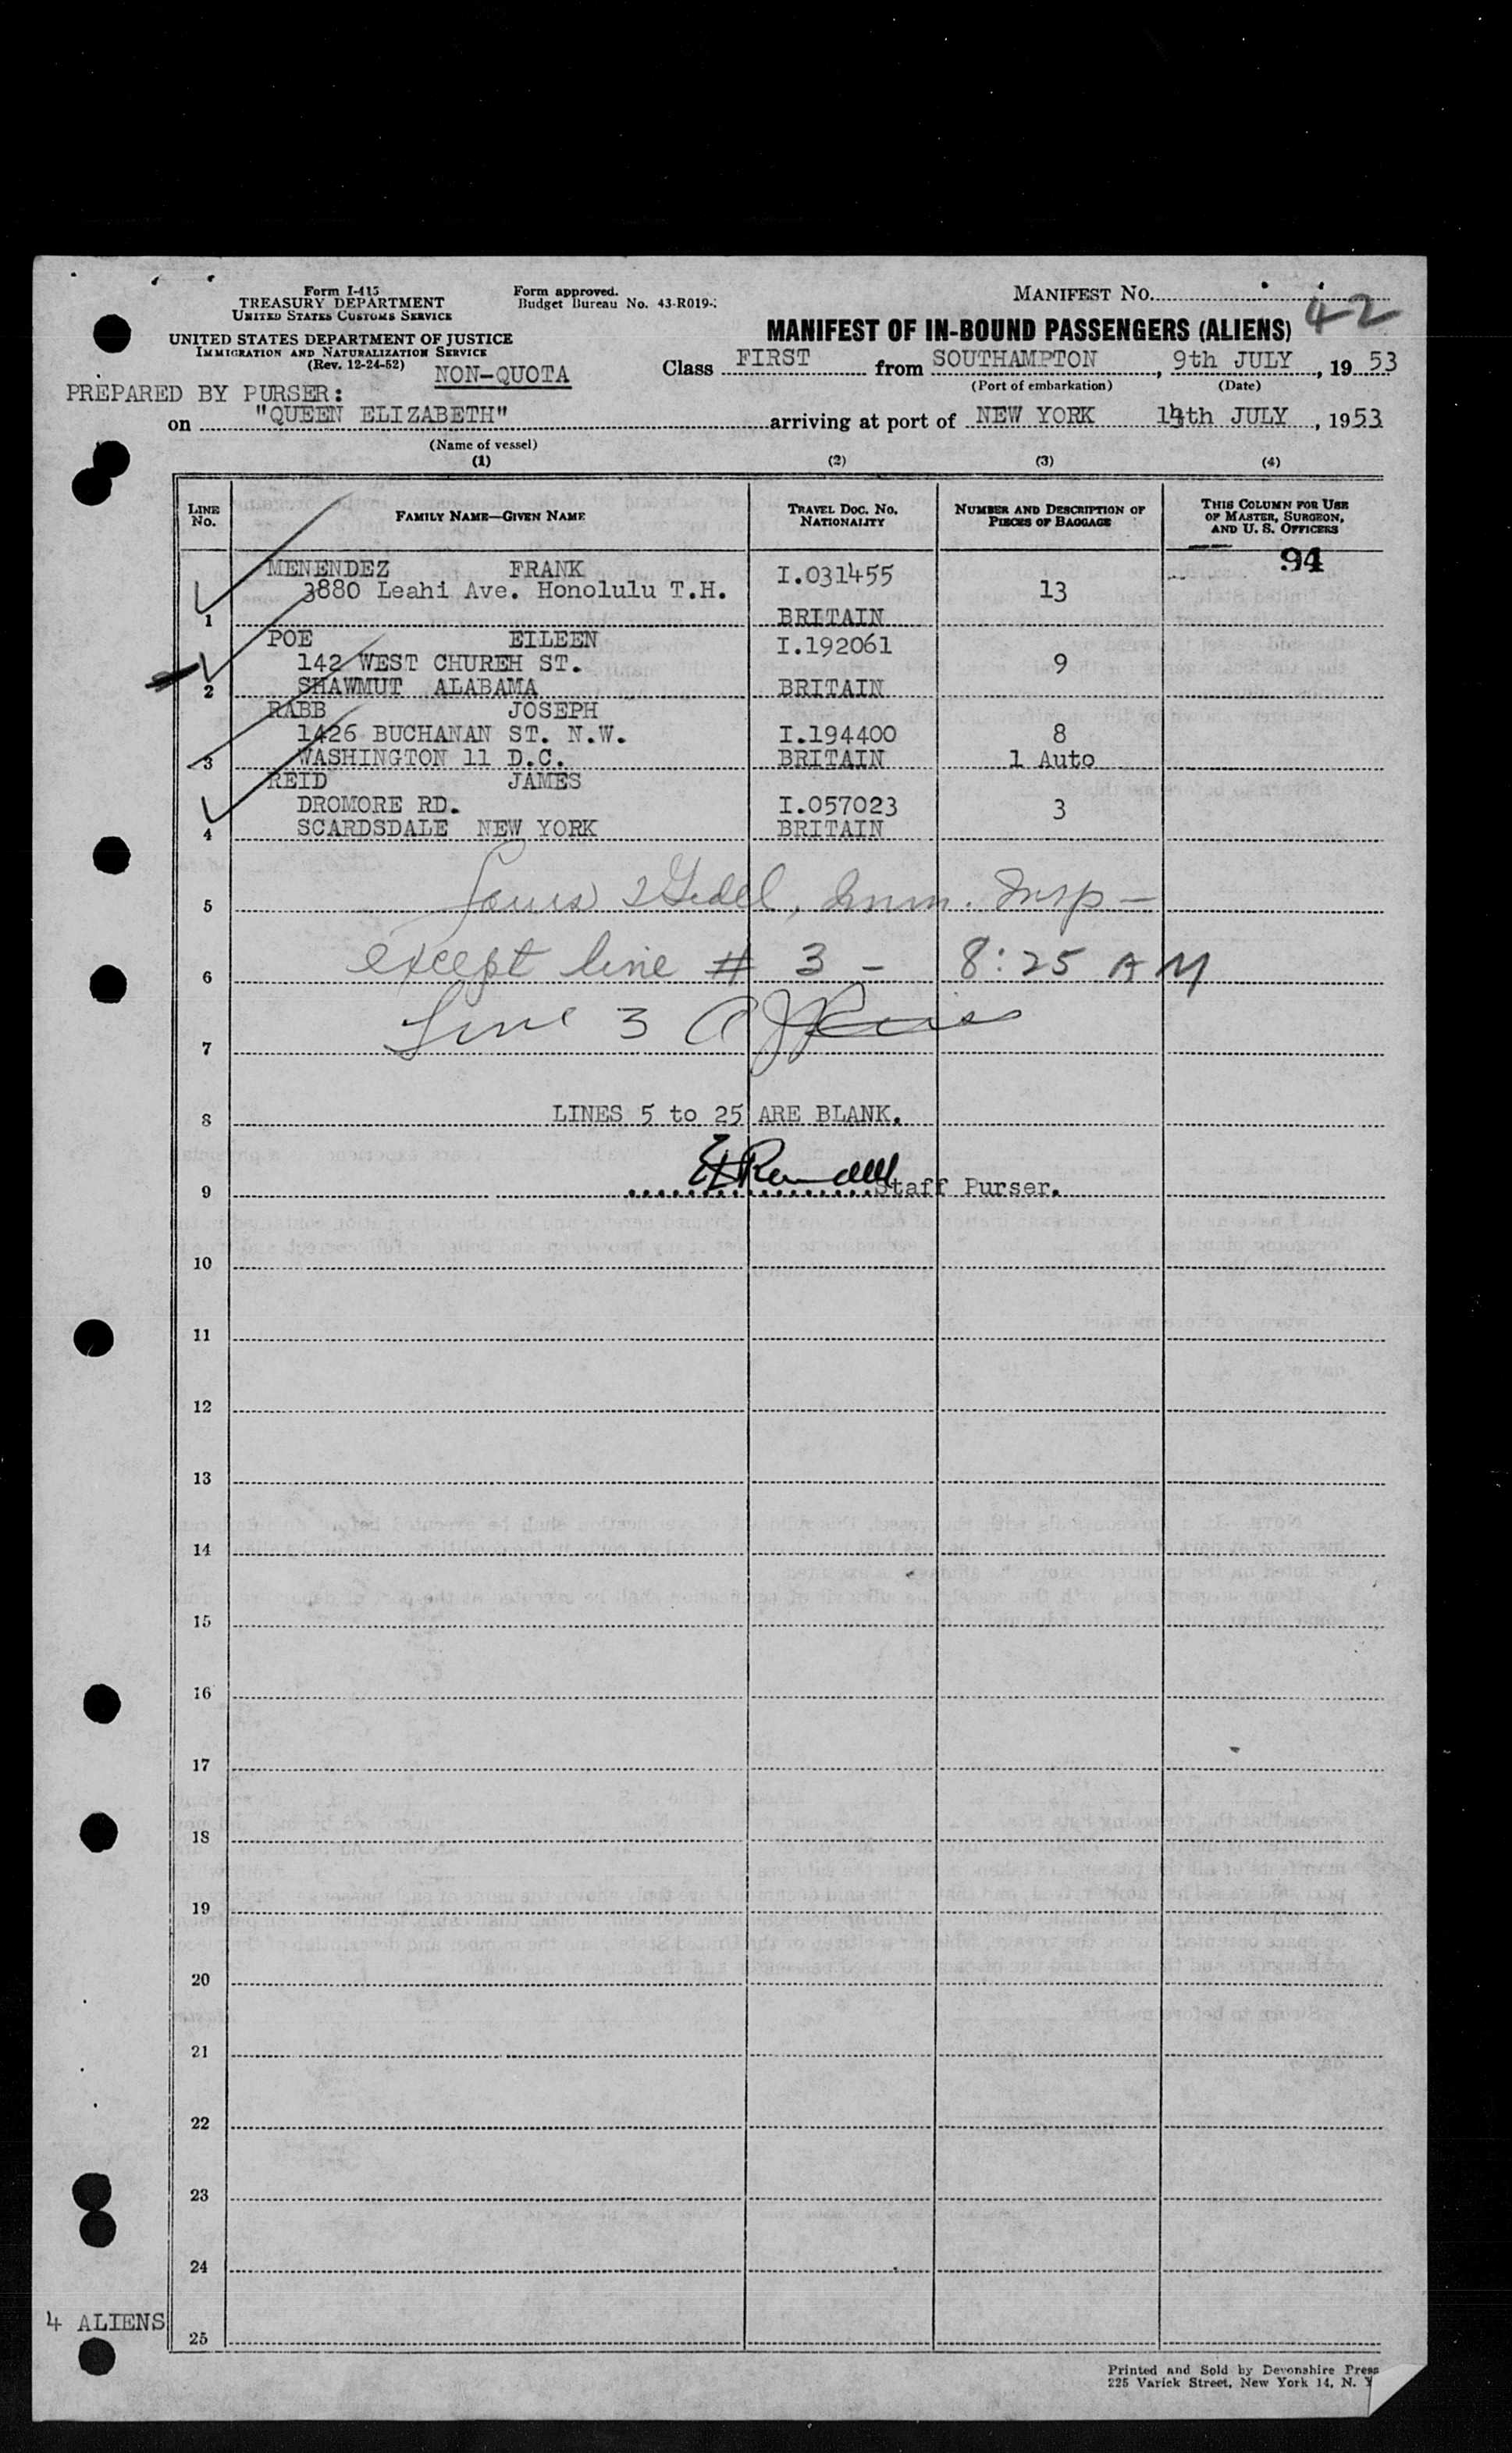 Form I-415
TREASURY DEPARTMENT
UNITED STATES CUSTOMS SERVICE
UNITED STATES DEPARTMENT OF JUSTICE
IMMIGRATION AND NATURALIZATION SERVICE
(Rev. 12-24-52)
Form approved.
Budget Bureau No. 43-R019-
MANIFEST NO.
42
MANIFEST OF IN-BOUND PASSENGERS (ALIENS)
NON-QUOTA
Class FIRST from SOUTHAMPTON, 9th JULY, 1953
(Port of embarkation) (Date)
PREPARED BY PURSER:
on "QUEEN ELIZABETH" arriving at port of NEW YORK 14th JULY, 1953
(Name of vessel)
(1) (2) (3) (4)
LINE NO. FAMILY NAME—GIVEN NAME TRAVEL DOC. NO. NATIONALITY NUMBER AND DESCRIPTION OF PIECES OF BAGGAGE THIS COLUMN FOR USE OF MASTER, SURGEON, AND U. S. OFFICERS
94
MENENDEZ FRANK I.031455
3880 Leahi Ave. Honolulu T.H. 13
1 BRITAIN
POE EILEEN I.192061
142 WEST CHUREH ST. 9
2 SHAWMUT ALABAMA BRITAIN
RABB JOSEPH
1426 BUCHANAN ST. N.W. I.194400 8
3 WASHINGTON 11 D.C. BRITAIN 1 Auto
REID JAMES
DROMORE RD. I.057023 3
4 SCARDSDALE NEW YORK BRITAIN
5 Louis Imm. Insp —
6 except line # 3 — 8:25 AM
7 Line 3
8 LINES 5 to 25 ARE BLANK.
9 Staff Purser.
10
11
12
13
14
15
16
17
18
19
20
21
22
23
24
4 ALIENS
25
Printed and Sold by Devonshire Press
225 Varick Street, New York 14, N. Y